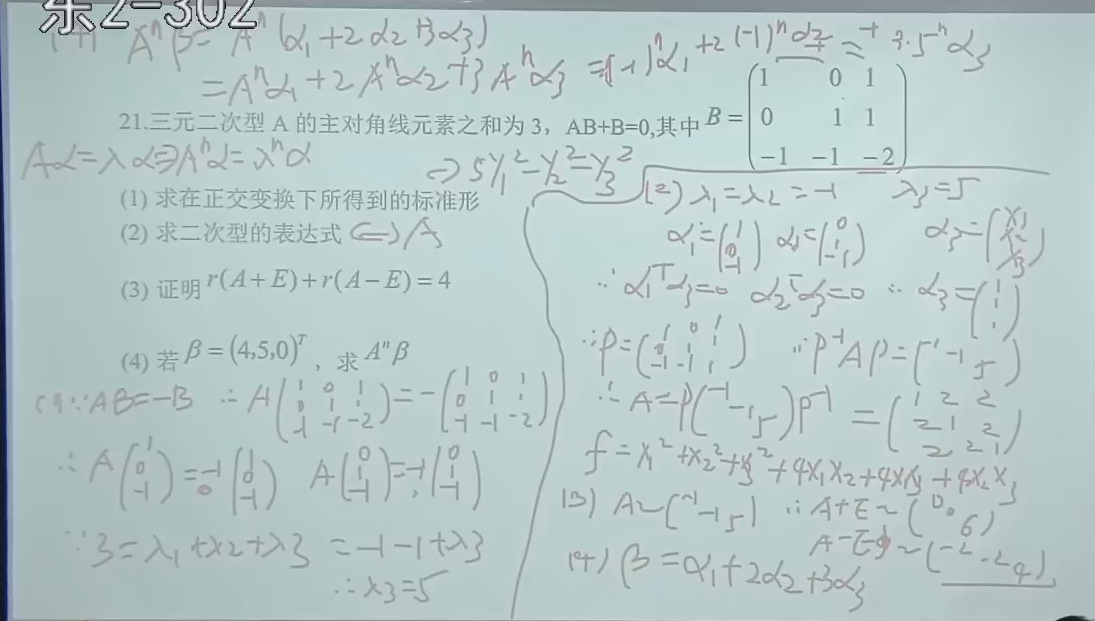 东2-302
(4) Aⁿβ = Aⁿ(α₁+2α₂+3α₃)
= Aⁿα₁+2Aⁿα₂+3Aⁿα₃ = (-1)ⁿα₁+2(-1)ⁿα₂ + 3·5ⁿα₃
21.三元二次型 A 的主对角线元素之和为 3，AB+B=0,其中 B = (1 0 1
0 1 1
-1 -1 -2)
Aα=λα⇒Aⁿα=λⁿα
⇒ 5y₁²-y₂²-y₃²
(1) 求在正交变换下所得到的标准形
(2) 求二次型的表达式 ⇔A
(3) 证明 r(A+E)+r(A−E)=4
(4) 若 β=(4,5,0)ᵀ，求 Aⁿβ
(1) ∵AB=-B ∴A(1 0 1
0 1 1
-1 -1 -2) = -(1 0 1
0 1 1
-1 -1 -2)
∴ A(1
0
-1) = -1(1
0
-1) A(0
1
-1) = -1·(0
1
-1)
∵3=λ₁+λ2+λ3 =-1-1+λ3
∴λ3=5
(2) λ₁=λ2=-1 λ₃=5
α₁=(1
0
-1) α₂=(0
1
-1) α₃=(x₁
x₂
x₃)
∵ α₁ᵀα₃=0 α₂ᵀα₃=0 ∴ α₃=(1
1
1)
∴P=(1 0 1
0 1 1
-1 -1 1) ∴P⁻¹AP=(-1 -1 5)
∴A=P(-1 -1 5)P⁻¹ =(1 2 2
2 1 2
2 2 1)
f=x₁²+x₂²+x₃²+4x₁x₂+4x₁x₃+4x₂x₃
(3) A~(-1 -1 5) ∴A+E~(0 0 6)
A-E~(-2 -2 4)
(4) β=α₁+2α₂+3α₃